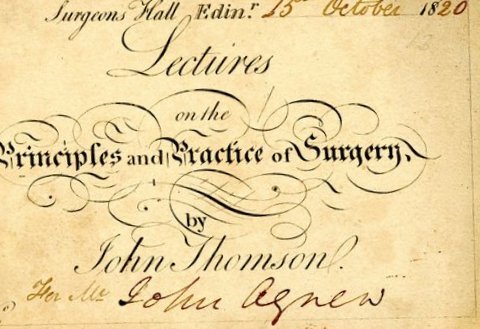 Surgeons Hall Edinr. 15 October 1820
Lectures
on the
Principles and Practice of Surgery,
by
John Thomson.
For Mr John Agnew